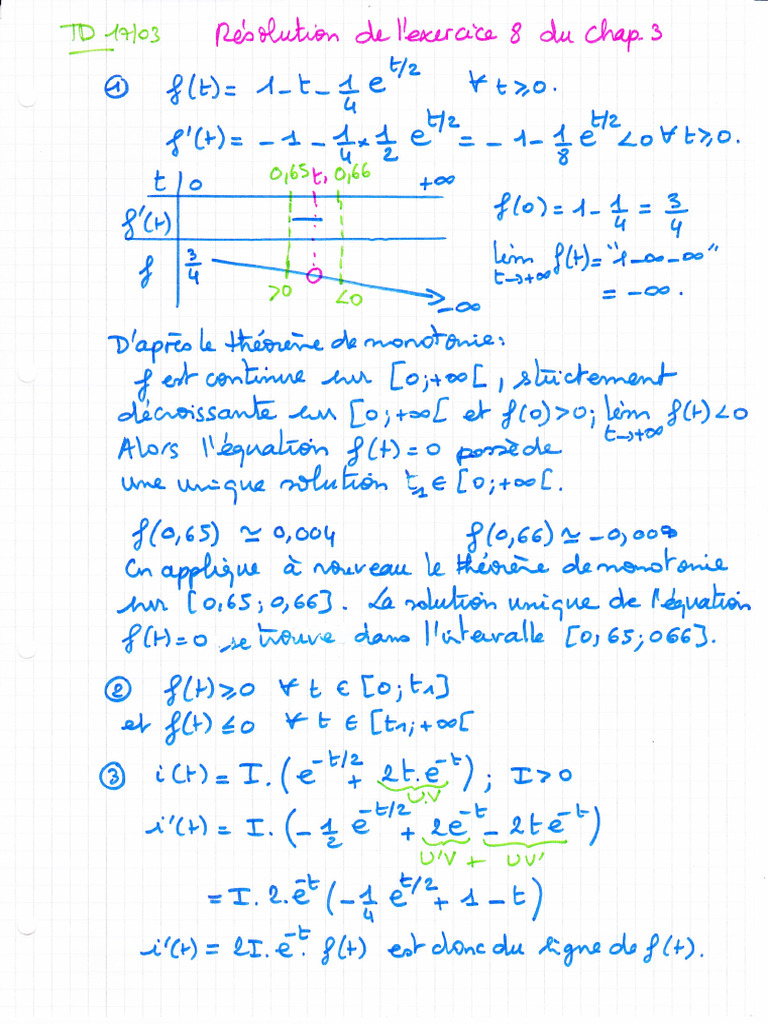 TD 17/03 Résolution de l'exercice 8 du chap. 3
① f(t) = 1 - t - 1/4 e^{t/2} ∀ t ≥ 0.
f'(t) = - 1 - 1/4 × 1/2 e^{t/2} = - 1 - 1/8 e^{t/2} < 0 ∀ t ≥ 0.
t 0 0,65 t₁ 0,66 +∞
f'(t) —
f 3/4 >0 0 <0 -∞
f(0) = 1 - 1/4 = 3/4
lim f(t) = "1 - ∞ - ∞"
t→+∞
= - ∞.
D'après le théorème de monotonie :
f est continue sur [0 ; +∞[ , strictement
décroissante sur [0 ; +∞[ et f(0) > 0 ; lim f(t) < 0
t→+∞
Alors l'équation f(t) = 0 possède
une unique solution t₁ ∈ [0 ; +∞[.
f(0,65) ≃ 0,004 f(0,66) ≃ - 0,008
On applique à nouveau le théorème de monotonie
sur [0,65 ; 0,66]. La solution unique de l'équation
f(t) = 0 se trouve dans l'intervalle [0,65 ; 066].
② f(t) ≥ 0 ∀ t ∈ [0 ; t1]
et f(t) ≤ 0 ∀ t ∈ [t1 ; +∞[
③ i(t) = I. (e^{-t/2} + 2t.e^{-t}) ; I > 0
U.V
i'(t) = I. (- 1/2 e^{-t/2} + 2e^{-t} - 2t e^{-t})
U'V + UV'
= I. 2. e^{-t} (- 1/4 e^{t/2} + 1 - t)
i'(t) = 2I. e^{-t}. f(t) est donc du signe de f(t).